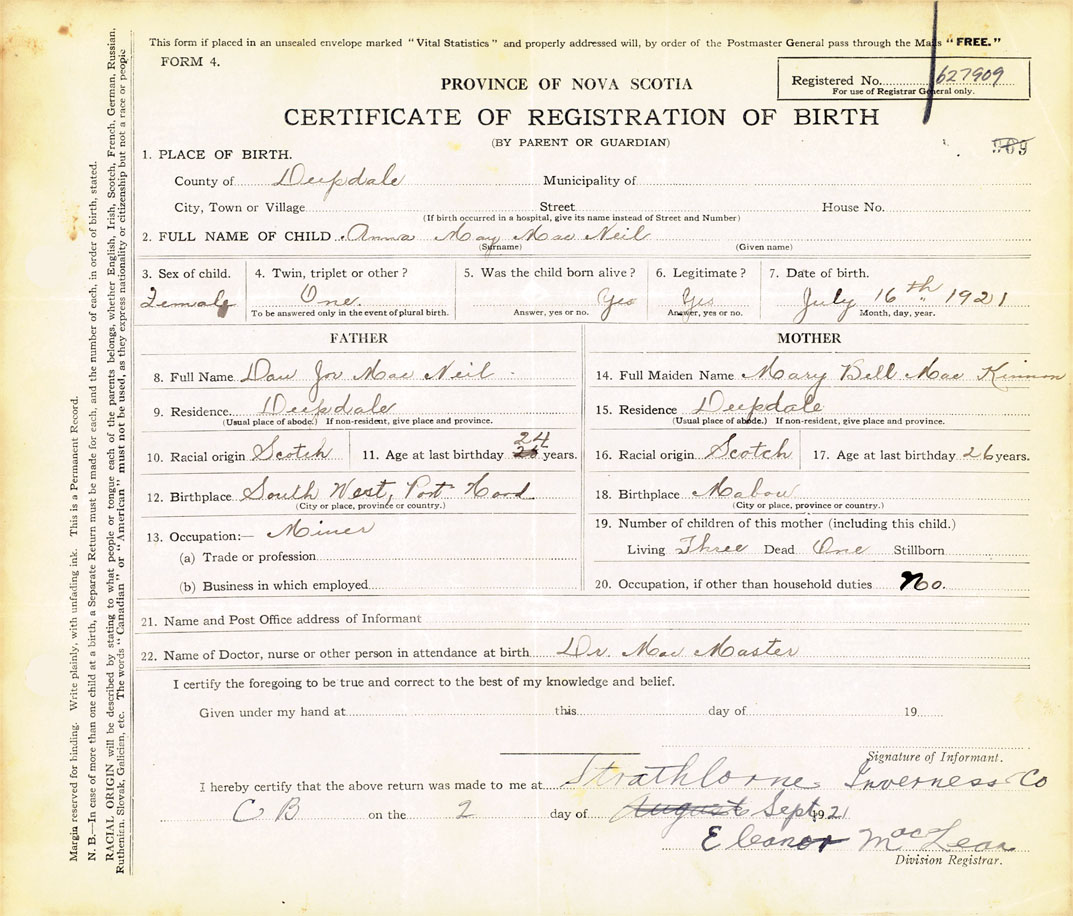 This form if placed in an unsealed envelope marked "Vital Statistics" and properly addressed will, by order of the Postmaster General pass through the Mails "FREE."
FORM 4.
Registered No. 627909
For use of Registrar General only.
PROVINCE OF NOVA SCOTIA
CERTIFICATE OF REGISTRATION OF BIRTH
(BY PARENT OR GUARDIAN)
1. PLACE OF BIRTH.
County of Deepdale Municipality of
City, Town or Village Street House No.
(If birth occurred in a hospital, give its name instead of Street and Number)
2. FULL NAME OF CHILD Anna May Mac Neil
(Surname) (Given name)
3. Sex of child. 4. Twin, triplet or other? 5. Was the child born alive? 6. Legitimate? 7. Date of birth.
Female One. Yes Yes July 16th 1921
To be answered only in the event of plural birth. Answer, yes or no. Answer, yes or no. Month, day, year.
FATHER
8. Full Name Dan Mac Neil
9. Residence Deepdale
(Usual place of abode.) If non-resident, give place and province.
10. Racial origin Scotch 11. Age at last birthday 24 years.
12. Birthplace South West, Port Hood
(City or place, province or country.)
13. Occupation:— Miner
(a) Trade or profession
(b) Business in which employed
MOTHER
14. Full Maiden Name Mary Bell Mac Kinnon
15. Residence Deepdale
(Usual place of abode.) If non-resident, give place and province.
16. Racial origin Scotch 17. Age at last birthday 26 years.
18. Birthplace Mabou
(City or place, province or country.)
19. Number of children of this mother (including this child.)
Living Three Dead One Stillborn
20. Occupation, if other than household duties No.
21. Name and Post Office address of Informant
22. Name of Doctor, nurse or other person in attendance at birth Dr. Mac Master
I certify the foregoing to be true and correct to the best of my knowledge and belief.
Given under my hand at this day of 19
Signature of Informant.
I hereby certify that the above return was made to me at Strathlorne Inverness Co
C B on the 2 day of August Sept 1921
Eleanor MacLean
Division Registrar.
Margin reserved for binding. Write plainly, with unfading ink. This is a Permanent Record.
N. B.—In case of more than one child at a birth, a Separate Return must be made for each, and the number of each, in order of birth, stated.
RACIAL ORIGIN will be described by stating to what people or tongue each of the parents belongs, whether English, Irish, Scotch, French, German, Russian,
Ruthenian, Slovak, Galician, etc. The words "Canadian" or "American" must not be used, as they express nationality or citizenship but not a race or people